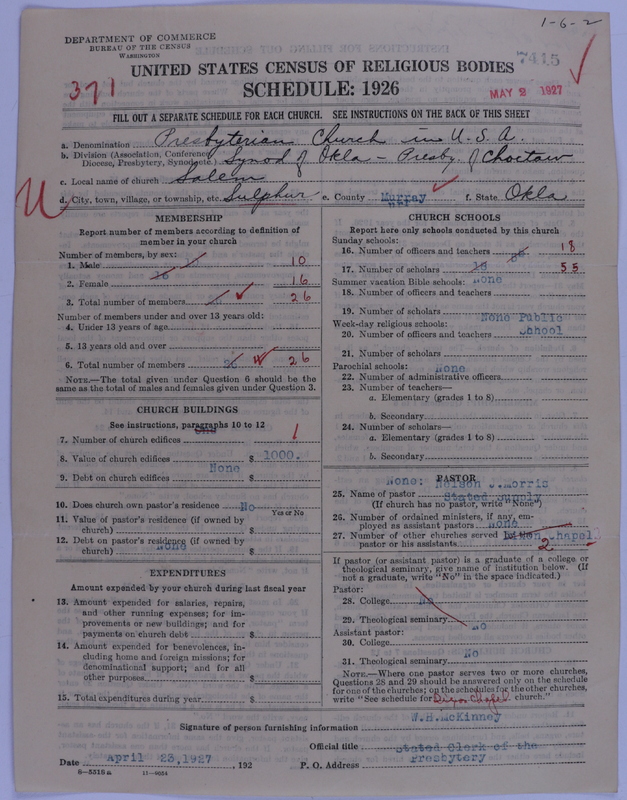 1-6-2
DEPARTMENT OF COMMERCE
BUREAU OF THE CENSUS
WASHINGTON
7415
371
UNITED STATES CENSUS OF RELIGIOUS BODIES
SCHEDULE: 1926
MAY 2 1927
FILL OUT A SEPARATE SCHEDULE FOR EACH CHURCH. SEE INSTRUCTIONS ON THE BACK OF THIS SHEET
a. Denomination Presbyterian Church in U.S.A.
b. Division (Association, Conference, Diocese, Presbytery, Synod, etc.) Synod of Okla - Presby. of Choctaw
c. Local name of church Salem
d. City, town, village, or township, etc. Sulphur e. County Murray f. State Okla
MEMBERSHIP
Report number of members according to definition of
member in your church
Number of members, by sex:
1. Male 10
2. Female 16
3. Total number of members 26
Number of members under and over 13 years old:
4. Under 13 years of age
5. 13 years old and over
6. Total number of members 26 26
NOTE.—The total given under Question 6 should be the
same as the total of males and females given under Question 3.
CHURCH BUILDINGS
See instructions, paragraphs 10 to 12
7. Number of church edifices One 1
8. Value of church edifices $ 1000.
9. Debt on church edifices None $
10. Does church own pastor's residence No
Yes or No
11. Value of pastor's residence (if owned by
church) $
12. Debt on pastor's residence (if owned by
church) None $
EXPENDITURES
Amount expended by your church during last fiscal year
13. Amount expended for salaries, repairs,
and other running expenses; for im-
provements or new buildings; and for
payments on church debt $
14. Amount expended for benevolences, in-
cluding home and foreign missions; for
denominational support; and for all
other purposes $
15. Total expenditures during year $
CHURCH SCHOOLS
Report here only schools conducted by this church
Sunday schools:
16. Number of officers and teachers 18
17. Number of scholars 55
Summer vacation Bible schools: None
18. Number of officers and teachers
19. Number of scholars
Week-day religious schools: None Public
20. Number of officers and teachers School
21. Number of scholars
Parochial schools: None
22. Number of administrative officers
23. Number of teachers—
a. Elementary (grades 1 to 8)
b. Secondary
24. Number of scholars—
a. Elementary (grades 1 to 8)
b. Secondary
PASTOR
None: Nelson J. Morris
25. Name of pastor Stated Supply
(If church has no pastor, write "None")
26. Number of ordained ministers, if any, em-
ployed as assistant pastors None
27. Number of other churches served Chapel
pastor or his assistants 2
If pastor (or assistant pastor) is a graduate of a college or
theological seminary, give name of institution below. (If
not a graduate, write "No" in the space indicated.)
Pastor:
28. College No
29. Theological seminary No
Assistant pastor:
30. College
31. Theological seminary No
NOTE.—Where one pastor serves two or more churches,
Questions 28 and 29 should be answered only on the schedule
for one of the churches; on the schedules for the other churches,
write "See schedule for Chapel church."
Signature of person furnishing information W.H.McKinney
Official title Stated Clerk of the
Presbytery
Date April 23,1927, 192 P. O. Address
8—5318a 11—9034